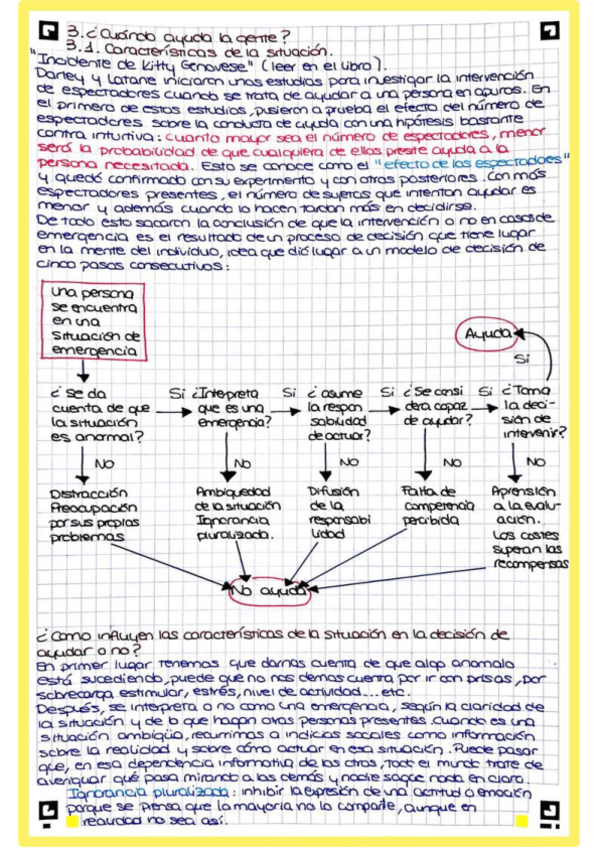 3. ¿Cuándo ayuda la gente?
3.1. Características de la situación.
"Incidente de Kitty Genovese" (leer en el libro).
Darley y Latane iniciaron unos estudios para investigar la intervención
de espectadores cuando se trata de ayudar a una persona en apuros. En
el primero de estos estudios, pusieron a prueba el efecto del número de
espectadores sobre la conducta de ayuda con una hipótesis bastante
contra intuitiva: cuanto mayor sea el número de espectadores, menor
será la probabilidad de que cualquiera de ellos preste ayuda a la
persona necesitada. Esto se conoce como el "efecto de los espectadores"
y quedó confirmado con su experimento y con otros posteriores. Con más
espectadores presentes, el número de sujetos que intentan ayudar es
menor y además cuando lo hacen tardan más en decidirse.
De todo esto sacaron la conclusión de que la intervención o no en casos de
emergencia es el resultado de un proceso de decisión que tiene lugar
en la mente del individuo, idea que dió lugar a un modelo de decisión de
cinco pasos consecutivos:
una persona
se encuentra
en una
situación de
emergencia
Ayuda
Si
¿se da
cuenta de que
la situación
es anormal?
Si
¿Interpreta
que es una
emergencia?
Si
¿asume
la respon
sabilidad
de actuar?
Si
¿Se consi
dera capaz
de ayudar?
Si
¿Toma
la deci-
sión de
intervenir?
NO
NO
NO
NO
NO
Distracción
Preocupación
por sus propios
problemas
Ambigüedad
de la situación
Ignorancia
pluralizada.
Difusión
de la
responsabi
lidad
Falta de
competencia
percibida
Aprensión
a la evalu-
ación.
Los costes
superan las
recompensas
No ayuda
¿Como influyen las características de la situación en la decisión de
ayudar o no?
En primer lugar tenemos que darnos cuenta de que algo anomalo
está sucediendo, puede que no nos demos cuenta por ir con prisas, por
sobrecarga estimular, estrés, nivel de actividad...etc.
Después, se interpreta o no como una emergencia, según la claridad de
la situación y de lo que hagan otras personas presentes. cuando es una
situación ambigüa, recurrimos a indicios sociales como información
sobre la realidad y sobre cómo actuar en esa situación. Puede pasar
que, en esa dependencia informativa de los otros, todo el mundo trate de
averiguar qué pasa mirando a los demás y nadie saque nada en claro.
Ignorancia pluralizada: inhibir la expresión de una actitud o emoción
porque se piensa que la mayoría no la comparte, aunque en
realidad no sea así.